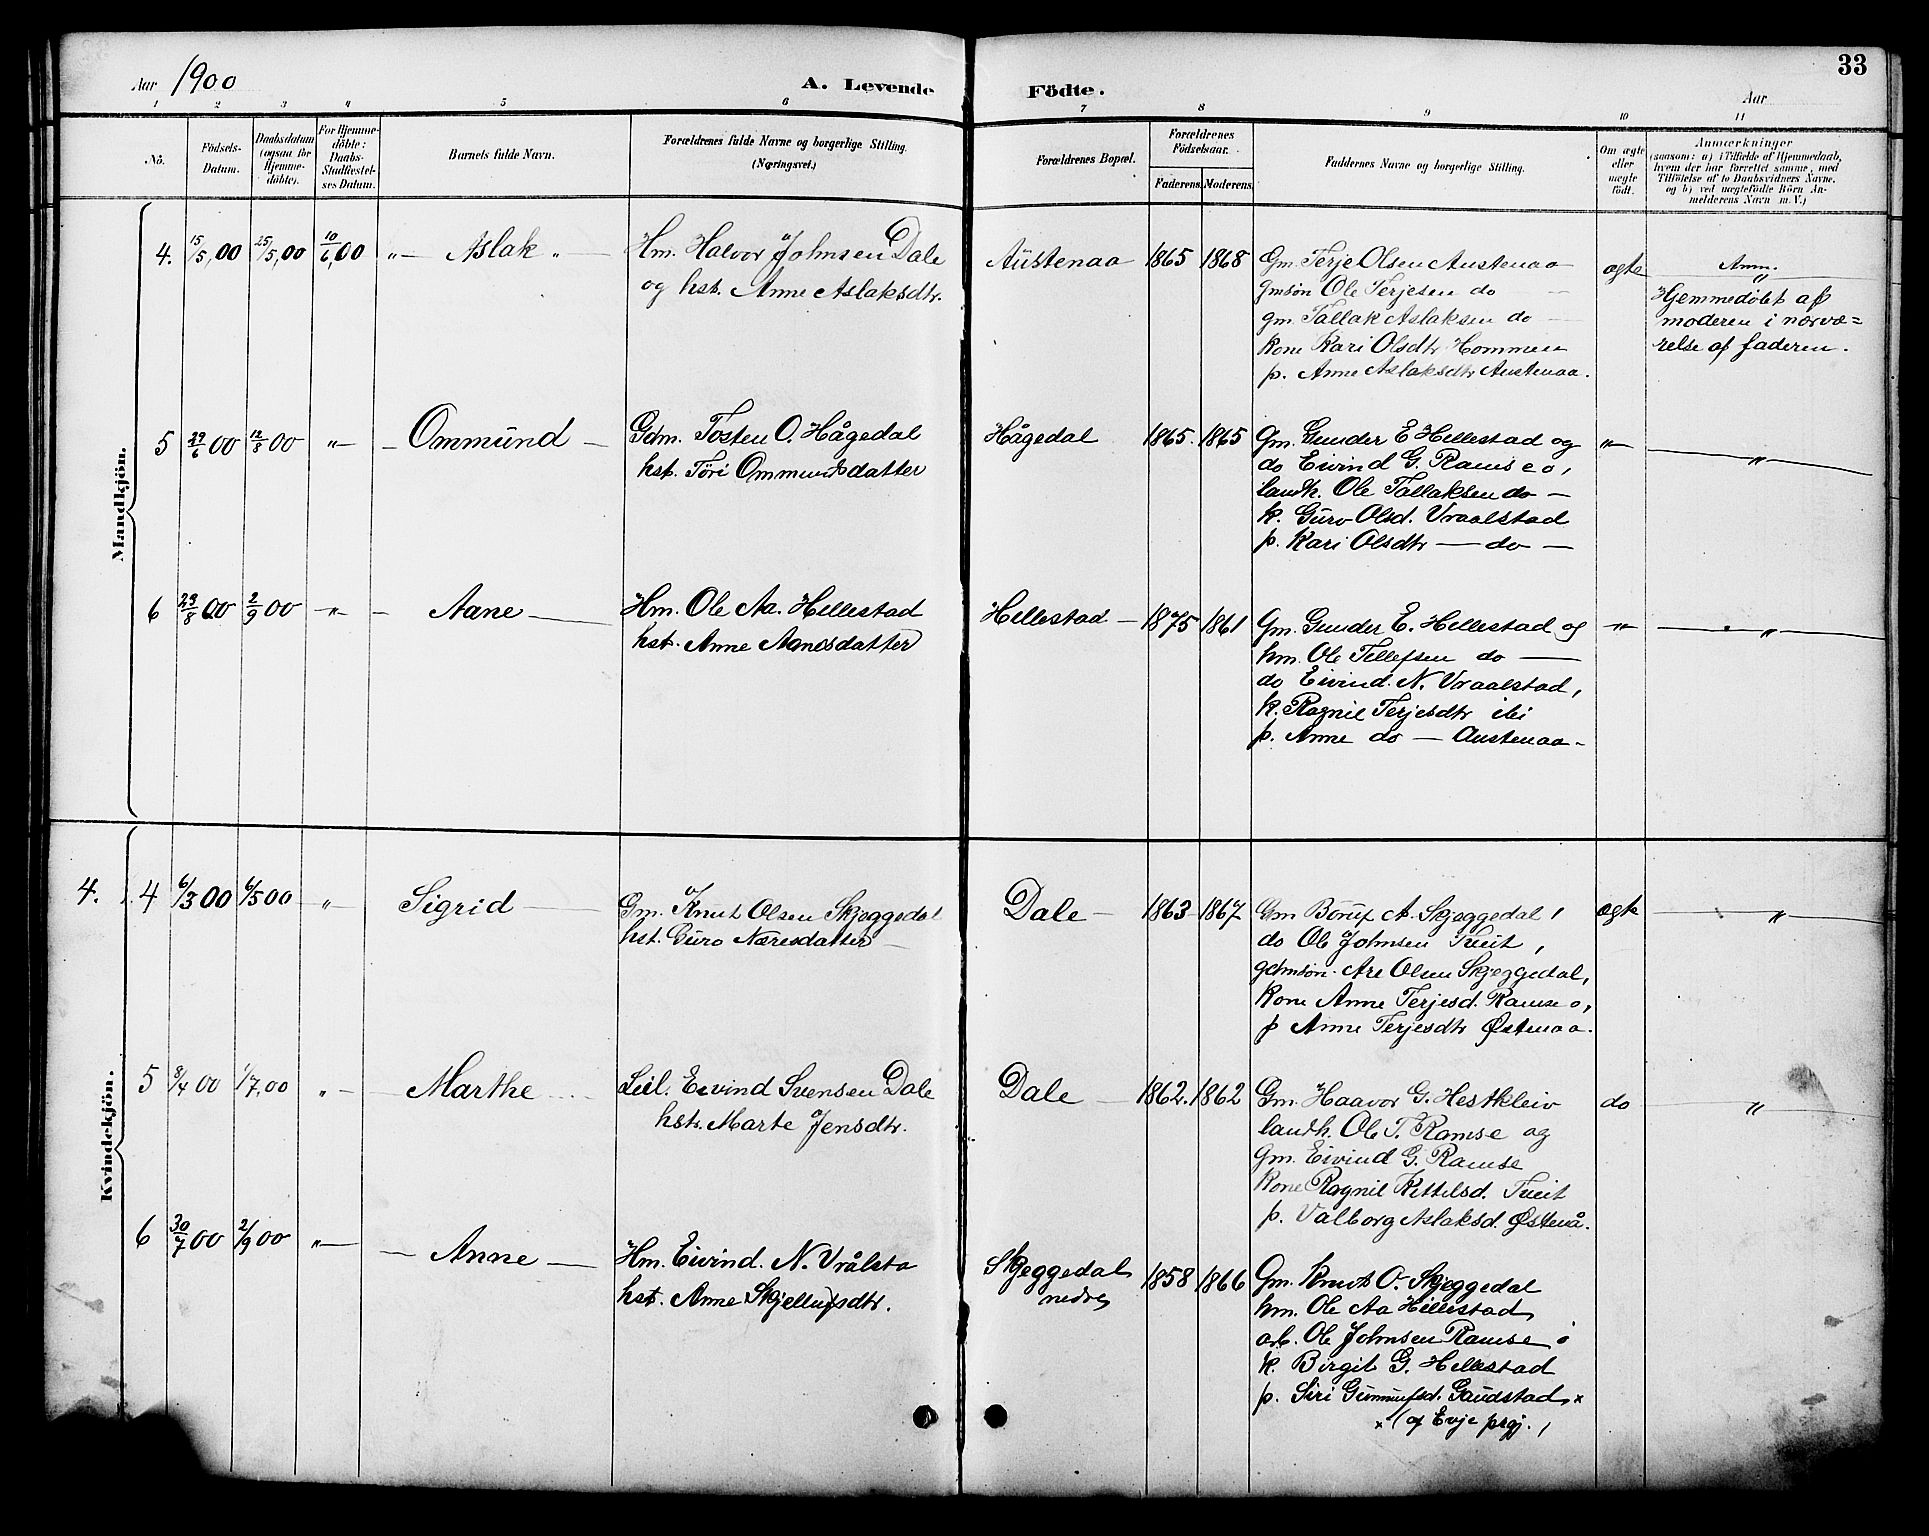 Aar 1900
A. Levende
Födte.
Aar
33
1 2 3 4 5 6 7 8 9 10 11
No.
Födsels-Datum.
Daabsdatum (ogsaa for Hjemme-döbte).
For Hjemme-döbte: Daabs-Stadfæstel-ses Datum.
Barnets fulde Navn.
Forældrenes fulde Navne og borgerlige Stilling. (Næringsvei.)
Forældrenes Bopæl.
Forældrenes Födselsaar.
Faderens. Moderens.
Faddernes Navne og borgerlige Stilling.
Om ægte eller uægte födt.
Anmærkninger
(saasom: a) i Tilfælde af Hjemmedaab, hvem der har forrettet samme, med Tilföielse af to Daabsvidners Navne, og b) ved uægtefödte Börn An-melderens Navn m. V.)
Mandkjön.
4. 15/5,00 25/5,00 10/6,00 „ — Aslak „ —
Hm. Halvor Johnsen Dale
og hst. Anne Aslaksdtr.
Austenaa 1865 1868
Gm. Terje Olsen Austenaa
gmsön Ole Terjesen do —
gm. Tallak Aslaksen do —
Kone Kari Olsdtr Hommen
p. Anne Aslaksdtr Austenaa.
ægte
Anm.
„
Hjemmedöbt af
moderen i nærvæ=
relse af faderen.
5 29/6 00 12/8 00 „ — Ommund —
Gdm. Tosten O. Hågedal
hst. Töri Ommundsdatter
Hågedal 1865. 1865
Gm. Gunder E Hellestad og
do Eivind G. Ramse o,
landh. Ole Tallaksen do —
k. Guro Olsd. Vraalstad
p. Kari Olsdtr — do —
„ — „
6 23/8 00 2/9 00 — „ — Aane —
Hm. Ole Aa. Hellestad
hst. Anne Aanesdatter
Hellestad — 1875 1861
Gm. Gunder E. Hellestad og
hm. Ole Tellefsen do —
do Eivind. N. Vraalstad,
k. Ragnil Terjesdtr ibi
p. Anne do — Austenaa -
„ — „
Kvindekjön.
4. 4 6/3 00 6/5 00 „ — Sigrid —
Gm. Knut Olsen Skjeggedal
hst. Guro Næresdatter —
Dale — 1863 1867
Gm Börup A. Skjeggedal,
do Ole Johnsen Tveit,
gdmsön. Are Olsen Skjeggedal,
Kone Anne Terjesd. Ramse o,
p Anne Terjesdtr Østenaa.
ægte „
5 8/4 00 1/7,00 „ — Marthe
Leil. Eivind Svensen Dale
hst. Marte Jensdtr.
Dale — 1862. 1862
Gm. Haavor G. Hestkleiv
landh. Ole T. Ramse og
Gm. Eivind G. Ramse
Kone Ragnil Kittilsd. Tveit
p. Valborg Aslaksd. Østenå.
do „
6 30/7 00 2/9 00 „ — Anne —
Hm. Eivind. N. Vrålsta
hst. Anne Skjellufsdtr.
Skjeggedal
nedre
1858 1866
Gm. Knut O. Skjeggedal
hm. Ole Aa Hillestad,
arb. Ole Johnsen Ramse o
k. Birgit G. Hellestad
p. Siri Gunnufsd. Gaudstad, x
x (af Evje prgj.,